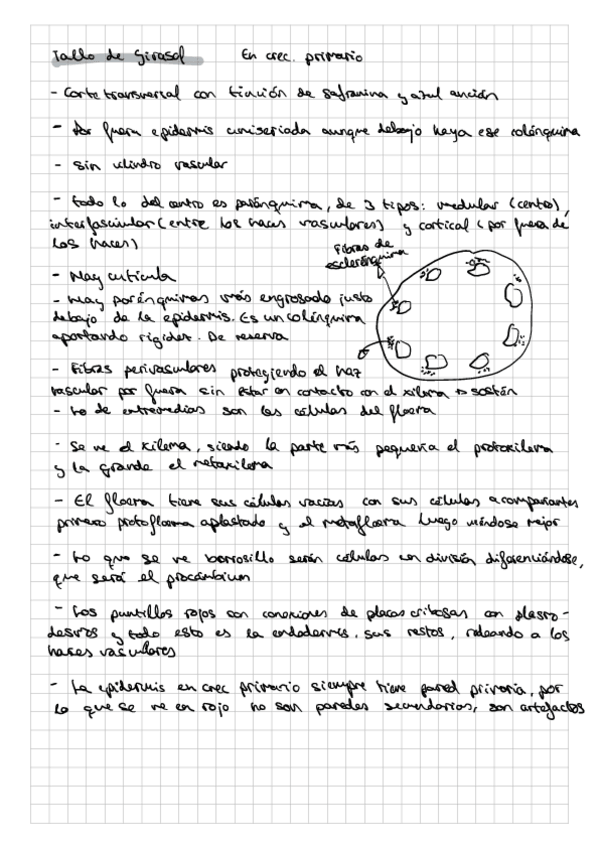 Tallo de Girasol En crec. primario
- Corte transversal con tinción de safranina y azul
- Por fuera epidermis uniseriada aunque debajo haya ese colénquima
- Sin cilindro vascular
- todo lo del centro es parénquima, de 3 tipos: medular (centro),
interfascicular (entre los haces vasculares) y cortical (por fuera de
los haces)
Fibras de
esclerénquima
- Hay cutícula
- Hay parénquimas más engrosado justo
debajo de la epidermis. Es un colénquima
aportando rigidez. De reserva
- Fibras perivasculares protegiendo el haz
vascular por fuera sin estar en contacto con el xilema → sostén
- Lo de entremedias son las células del floema
- Se ve el xilema, siendo la parte más pequeña el protoxilema
y la grande el metaxilema
- El floema tiene sus células vacías con sus células acompañantes
primero protofloema aplastado y el metafloema luego viéndose mejor
- Lo que se ve borrosillo serán células en división diferenciándose,
que será el procámbium
- Los puntillos rojos son conexiones de placas cribosas con plasmo-
desmos y todo esto es la endodermis, sus restos, rodeando a los
haces vasculares
- La epidermis en crec primario siempre tiene pared primaria, por
lo que se ve en rojo no son paredes secundarias, son artefactos